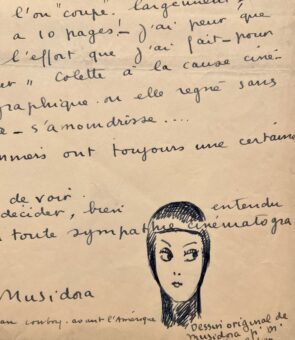 l'on "coupe" largement,
a 10 pages! - j'ai peur, que
l'effort que j'ai fait - pour
" Colette à la cause ciné-
graphique. ou elle regne sans
s'amoindrisse ....
ont toujours une certaine
de voir
décider, bien entendu
toute sympathie cinématogra
Musidora
cowboy. avant l'Amérique
Dessin original de
Musidora